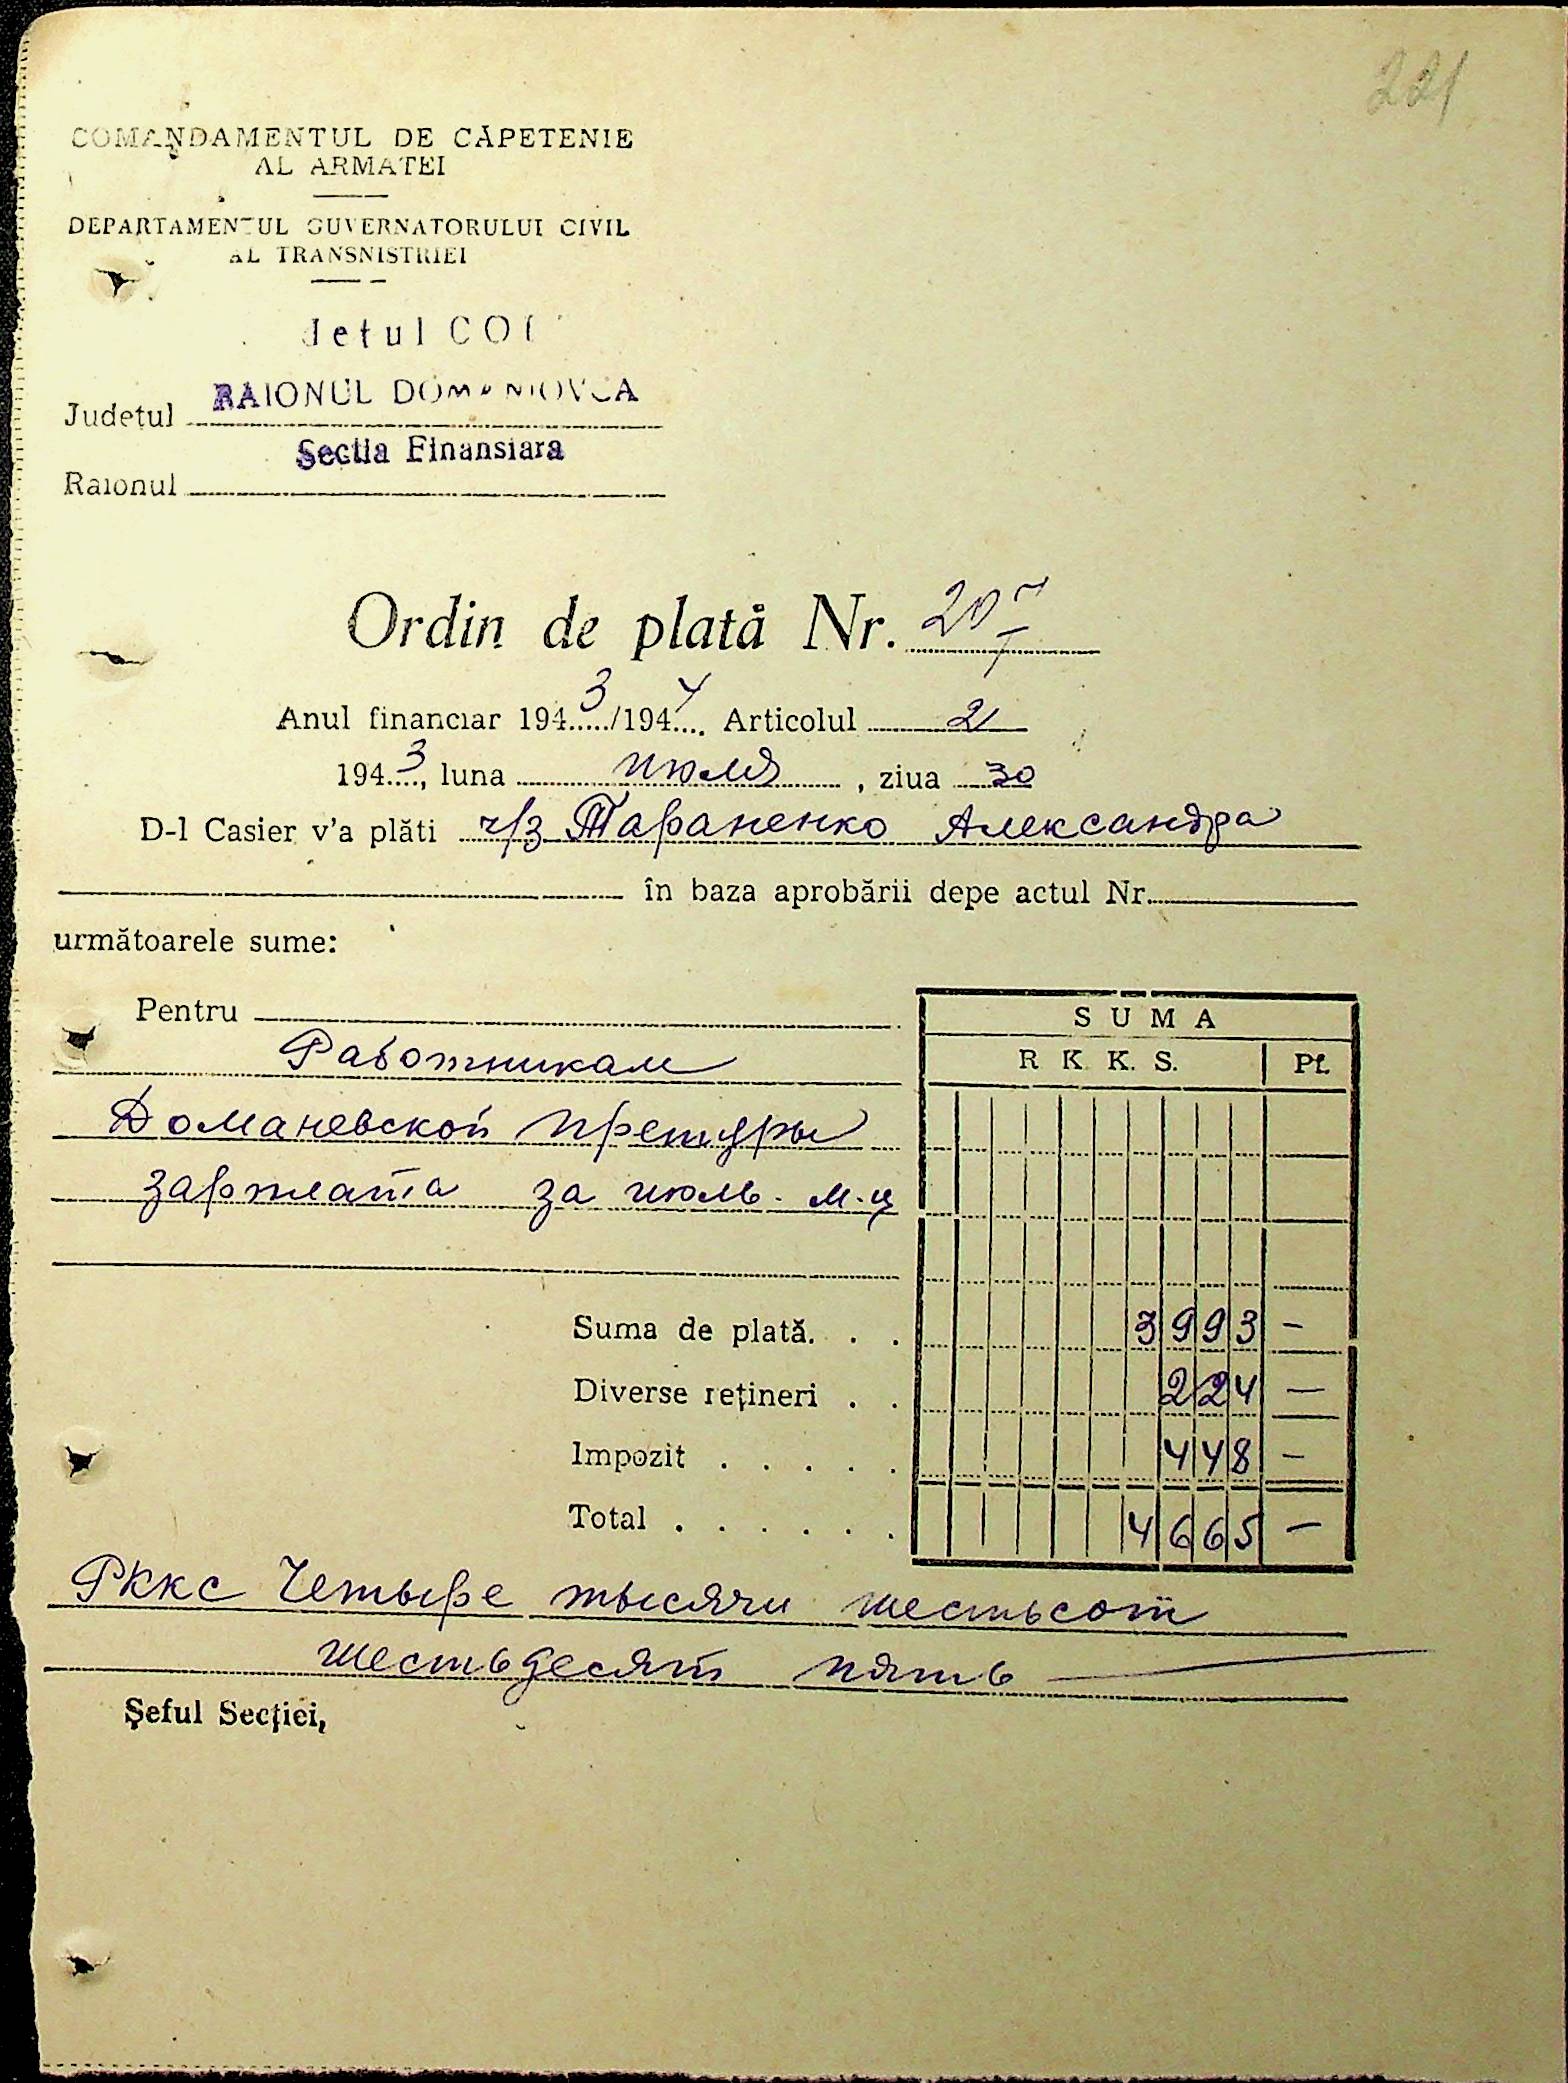 221
COMANDAMENTUL DE CĂPETENIE
AL ARMATEI
DEPARTAMENTUL GUVERNATORULUI CIVIL
AL TRANSNISTRIEI
Județul RAIONUL DOMANIOVCA
Sectia Finansiara
Raionul
Ordin de plată Nr. 207
Anul financiar 1943/1944. Articolul 21
1943, luna июля, ziua 30
D-l Casier v'a plăti ч/з Тараненко Александра
în baza aprobării depe actul Nr.
următoarele sume:
Pentru
Работникам
Доманевской претуры
зарплата за июль. м-ц
SUMA
R K K. S. Pf.
Suma de plată. . . 3993 –
Diverse rețineri . . 224 —
Impozit . . . . . 448 –
Total . . . . . . 4665 –
Рккс Четыре тысячи шестьсот
шестьдесят пять —
Șeful Secției,